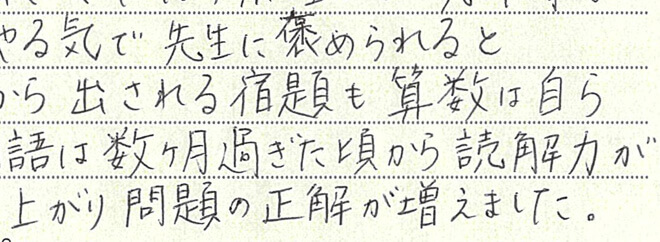 やる気で先生に褒められると
から出される宿題も算数は自ら
語は数ヶ月過ぎた頃から読解力が
上がり問題の正解が増えました。